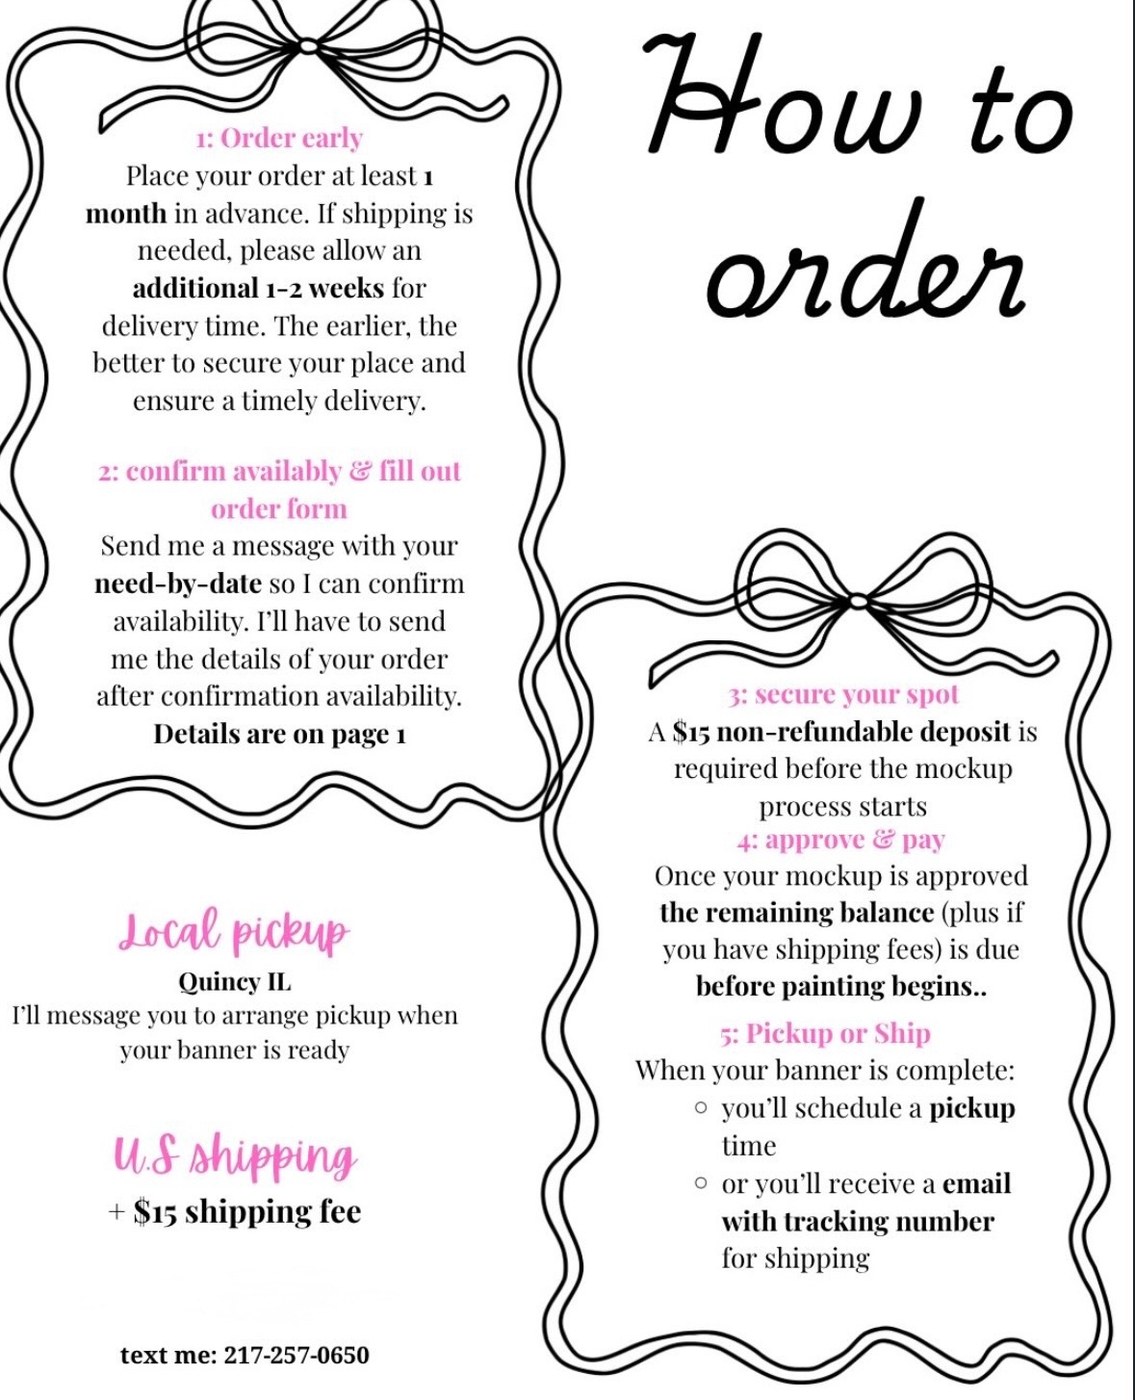 How to
order
1: Order early
Place your order at least 1
month in advance. If shipping is
needed, please allow an
additional 1-2 weeks for
delivery time. The earlier, the
better to secure your place and
ensure a timely delivery.
2: confirm availably & fill out
order form
Send me a message with your
need-by-date so I can confirm
availability. I'll have to send
me the details of your order
after confirmation availability.
Details are on page 1
3: secure your spot
A $15 non-refundable deposit is
required before the mockup
process starts
4: approve & pay
Once your mockup is approved
the remaining balance (plus if
you have shipping fees) is due
before painting begins..
5: Pickup or Ship
When your banner is complete:
○ you'll schedule a pickup
time
○ or you'll receive a email
with tracking number
for shipping
Local pickup
Quincy IL
I'll message you to arrange pickup when
your banner is ready
U.S shipping
+ $15 shipping fee
text me: 217-257-0650